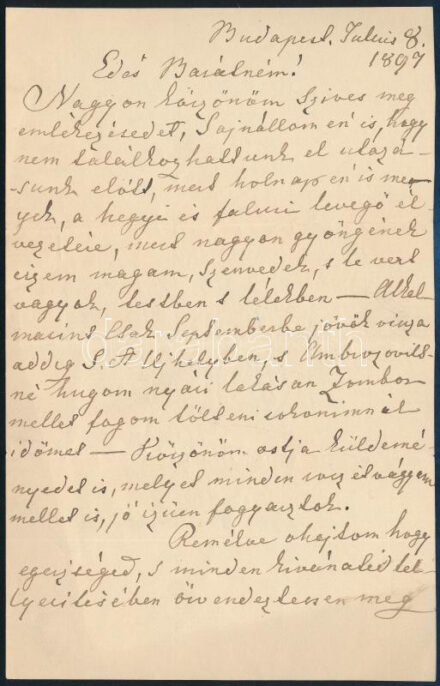 Budapest. Julius 8.
1897
Edes Barátném!
Nagyon köszönöm szives meg
emlékezésedet, Sajnállom én is, hogy
nem találkozhattunk el utazá-
sunk előtt, mert holnap én is me-
gyek, a hegyi és falusi levegő él-
vezetére, mert nagyon gyöngének
érzem magam, szenvedek, s le vert
vagyok, testben s lélekben —
Csak Septemberbe jövök vissza
addig S. A. Ujhelyben, s Ambrozovits-
né hugom nyári lakásán Zombor
mellet fogom tölteni rokonimnál
időmet — Köszönöm ostja küldemé-
nyedet is, melyet minden
mellet is, jó izüen fogyasztok.
Remélve ohajtom hogy
egészséged, s minden kivánatid tel-
lyesitésében örvendeztessen meg